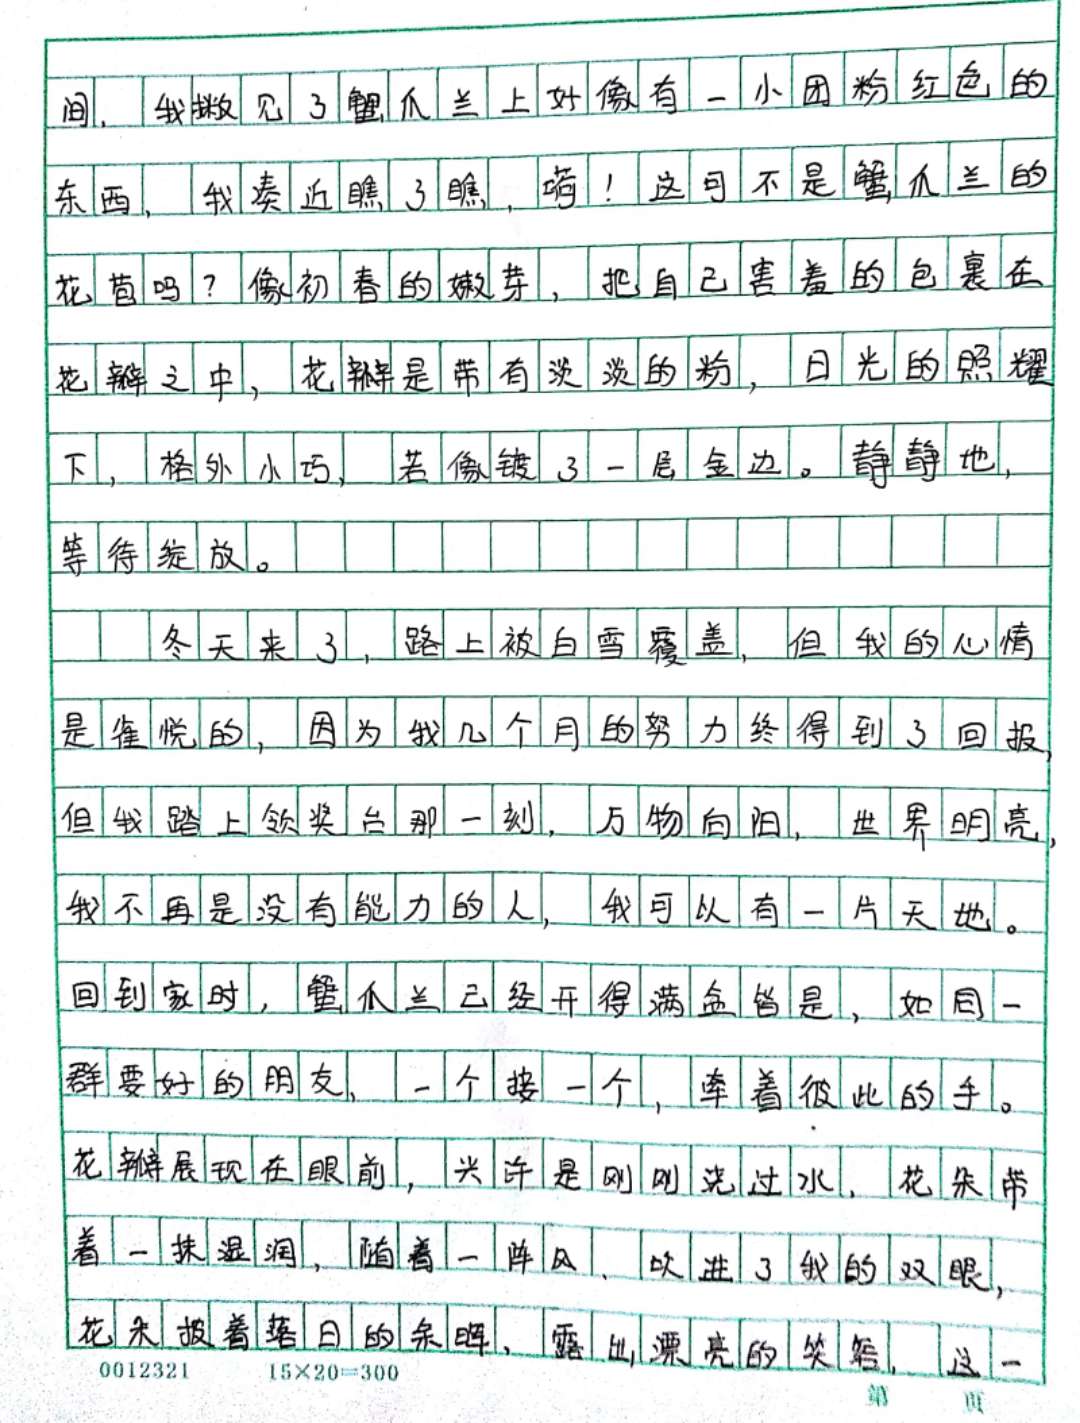 间，我瞥见了蟹爪兰上好像有一小团粉红色的
东西，我凑近瞧了瞧，嗬！这可不是蟹爪兰的
花苞吗？像初春的嫩芽，把自己害羞的包裹在
花瓣之中，花瓣是带有淡淡的粉，日光的照耀
下，格外小巧，若像镀了一层金边。静静地，
等待绽放。
冬天来了，路上被白雪覆盖，但我的心情
是雀悦的，因为我几个月的努力终得到了回报，
但我踏上领奖台那一刻，万物向阳，世界明亮，
我不再是没有能力的人，我可以有一片天地。
回到家时，蟹爪兰已经开得满盆皆是，如同一
群要好的朋友，一个接一个，牵着彼此的手。
花瓣展现在眼前，兴许是刚刚浇过水，花朵带
着一抹湿润，随着一阵风，吹进了我的双眼，
花朵披着落日的余晖，露出漂亮的笑容，这一
0012321 15×20=300
第 页